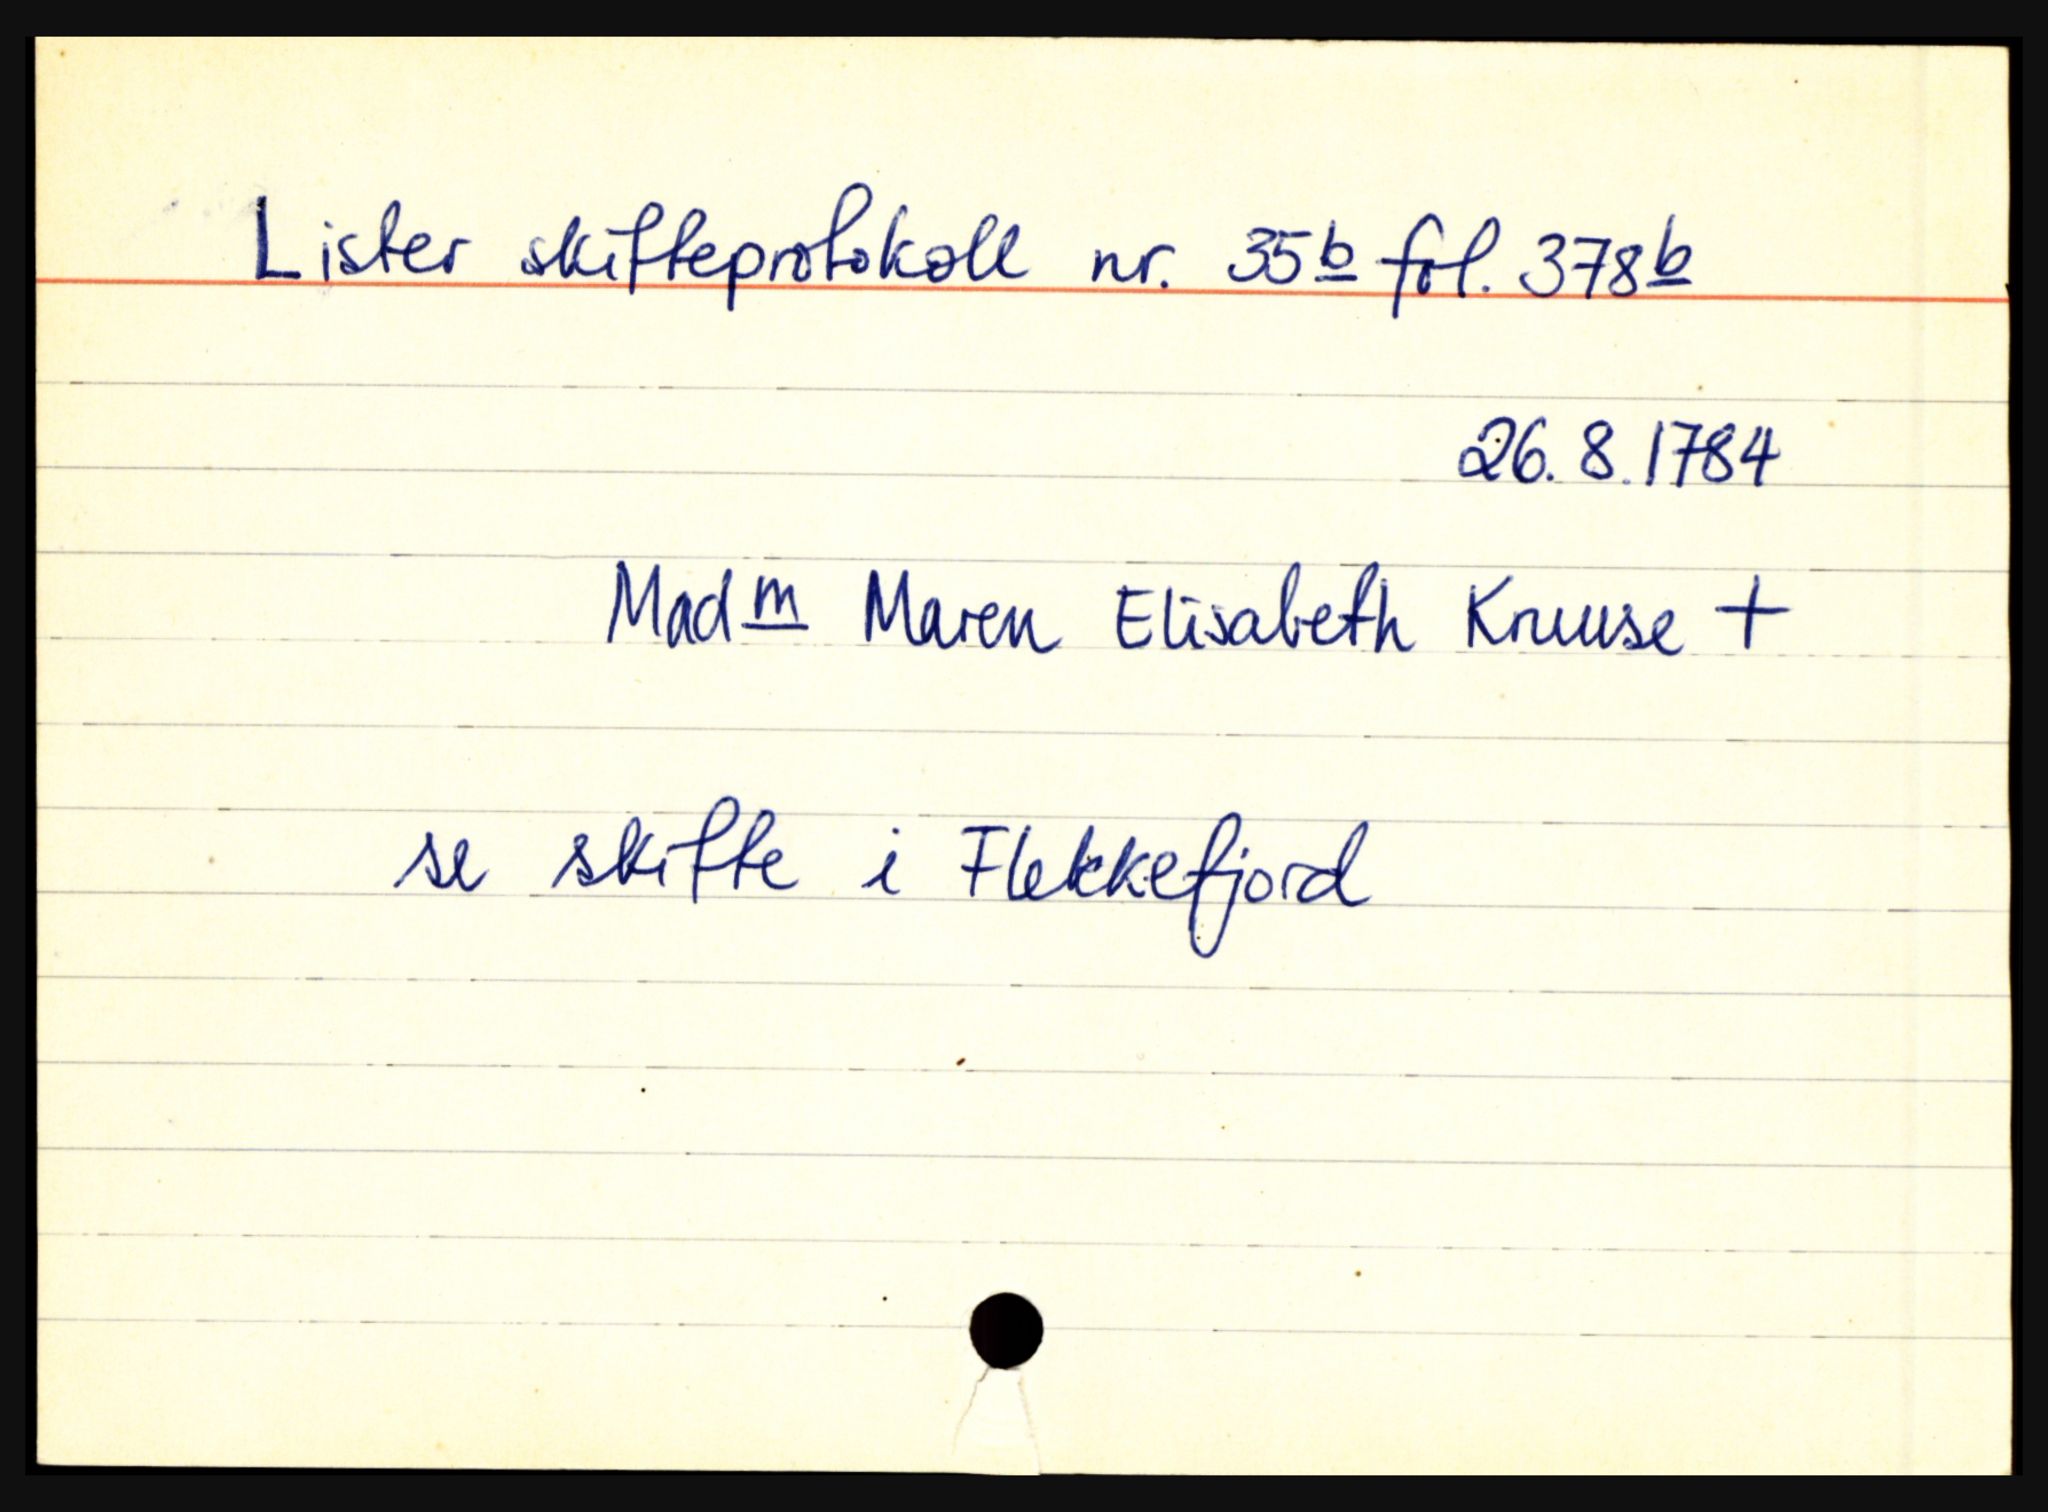 Lister skifteprotokoll nr. 35b fol. 378b
26.8.1784
Madm Maren Elisabeth Kruuse +
se skifte i Flekkefjord